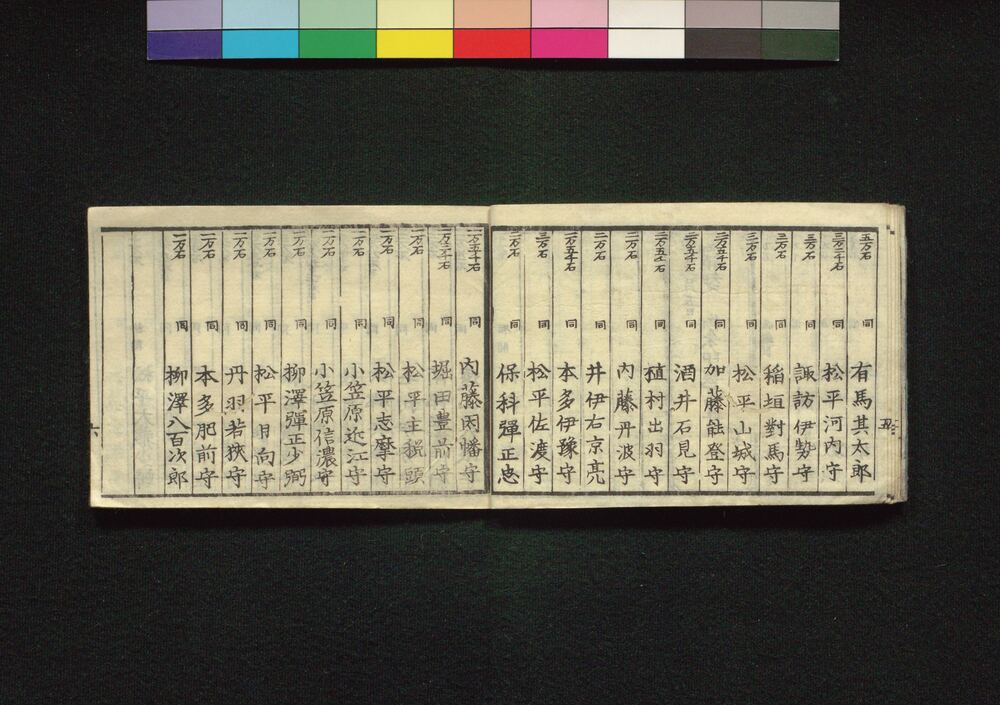 五万石 同 有馬其太郎
三万五千石 同 松平河内守
三万石 同 諏訪伊勢守
三万石 同 稲垣對馬守
三万石 同 松平山城守
二万五千石 同 加藤能登守
二万五千石 同 酒井石見守
二万五千石 同 植村出羽守
二万石 同 内藤丹波守
二万石 同 井伊右京亮
一万五千石 同 本多伊豫守
三万石 同 松平佐渡守
二万石 同 保科彈正忠
五
一万五千石 同 内藤因幡守
一万三千石 同 堀田豊前守
一万石 同 松平主税頭
一万石 同 松平志摩守
一万石 同 小笠原近江守
一万石 同 小笠原信濃守
一万石 同 柳澤彈正少弼
一万石 同 松平日向守
一万石 同 丹羽若狭守
一万石 同 本多肥前守
一万石 同 柳澤八百次郎
六